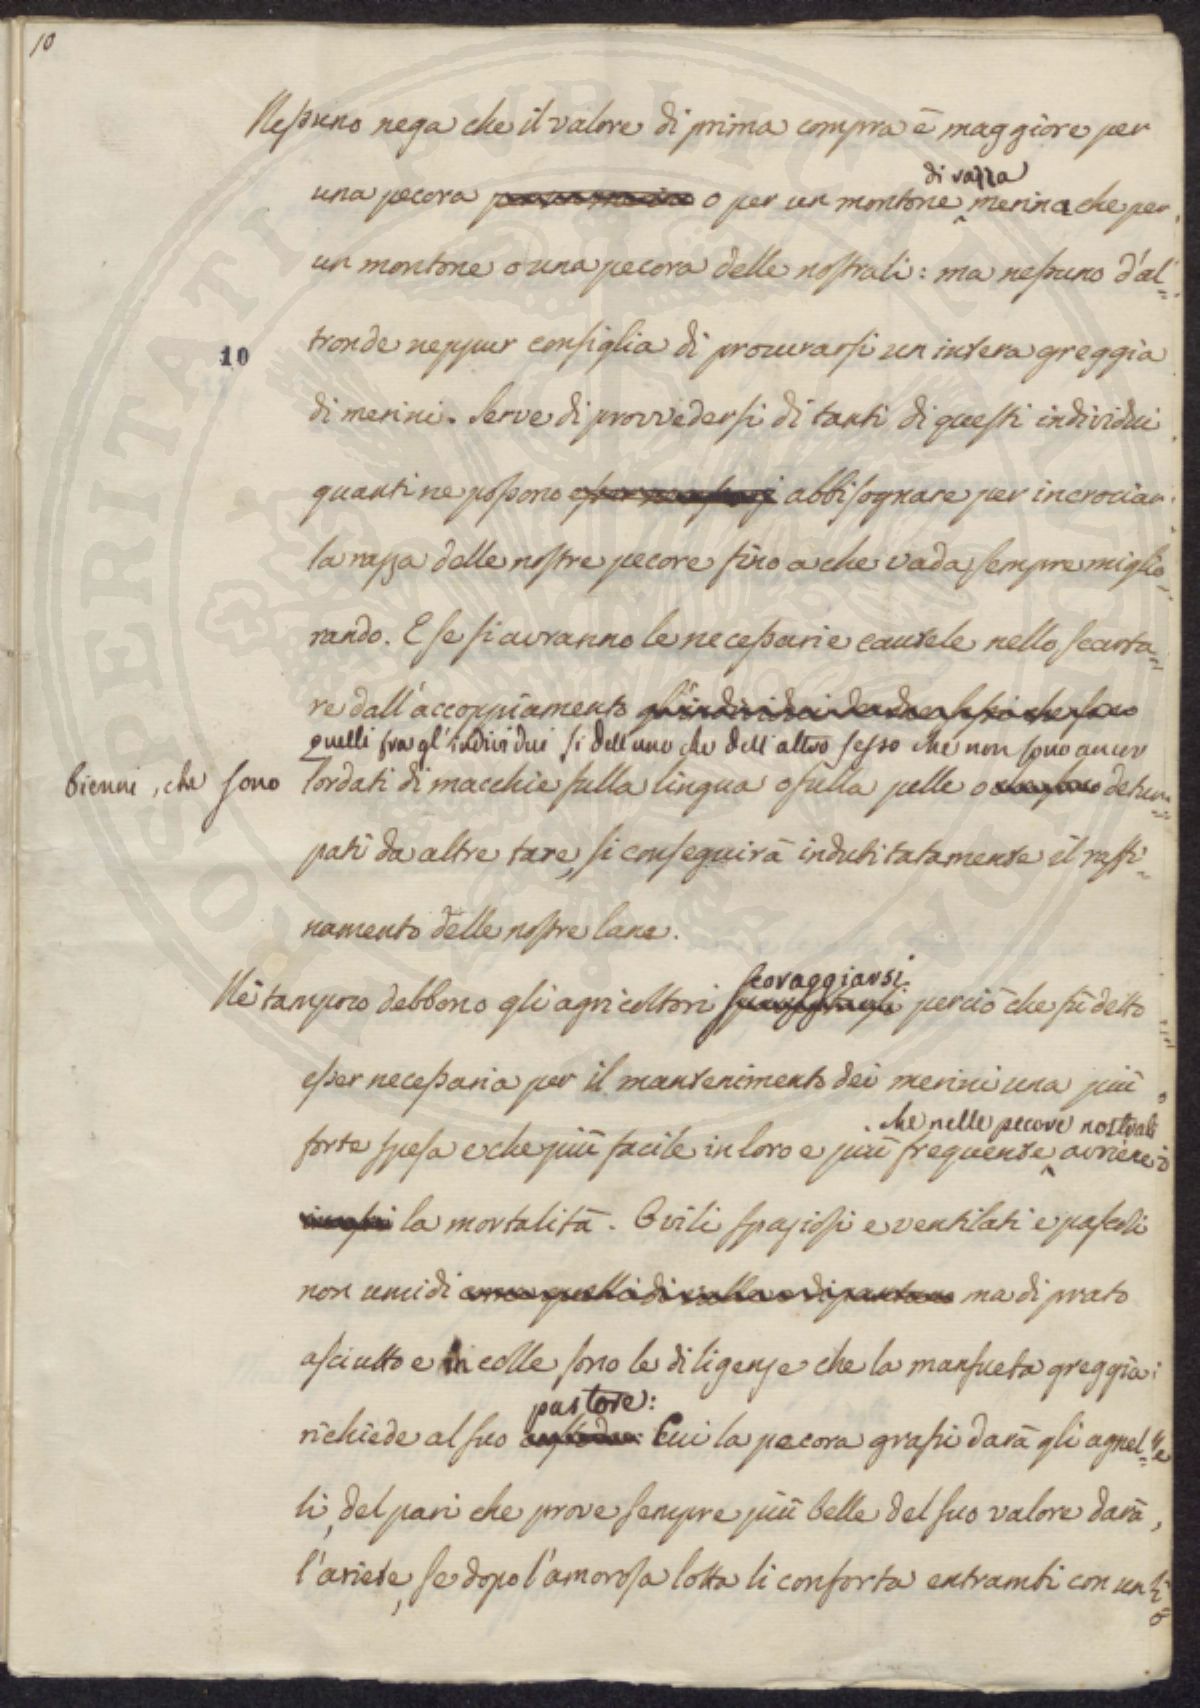 10
Nessuno nega che il valore di prima compra è maggiore per
di razza
una pecora o per un montone merina che per
un montone o una pecora delle nostrali: ma nessuno d'al=
10
tronde neppur consiglia di procurarsi un intera greggia
di merini. Serve di provvedersi di tanti di questi individui
quanti ne possono abbisognare per incrociar
la razza delle nostre pecore fino a che vada sempre miglio=
rando. E se si avranno le necessarie cautele nello scarta=
re dall'accoppiamento gl'individui
quelli fra gl'individui sì dell'uno che dell'altro sesso che non sono ancor
bienni, che sono lordati di macchie sulla lingua o sulla pelle o detur=
pati da altre tare, si conseguirà indubitatamente il raffi=
namento delle nostre lane.
scoraggiarsi
Nè tampoco debbono gli agricoltori perciò che fù detto
esser necessaria per il mantenimento dei merini una più
che nelle pecore nostrali
forte spesa e che più facile in loro e più frequente avviene
la mortalità. Ovili spaziosi e ventilati e pascoli
non umidi ma di prato
asciutto e in colle sono le diligenze che la mansueta greggia
pastore:
richiede al suo Cui la pecora grassi darà gli agnel=
li, del pari che prove sempre più belle del suo valore darà,
l'ariete, se dopo l'amorosa lotta li conforta entrambi con un